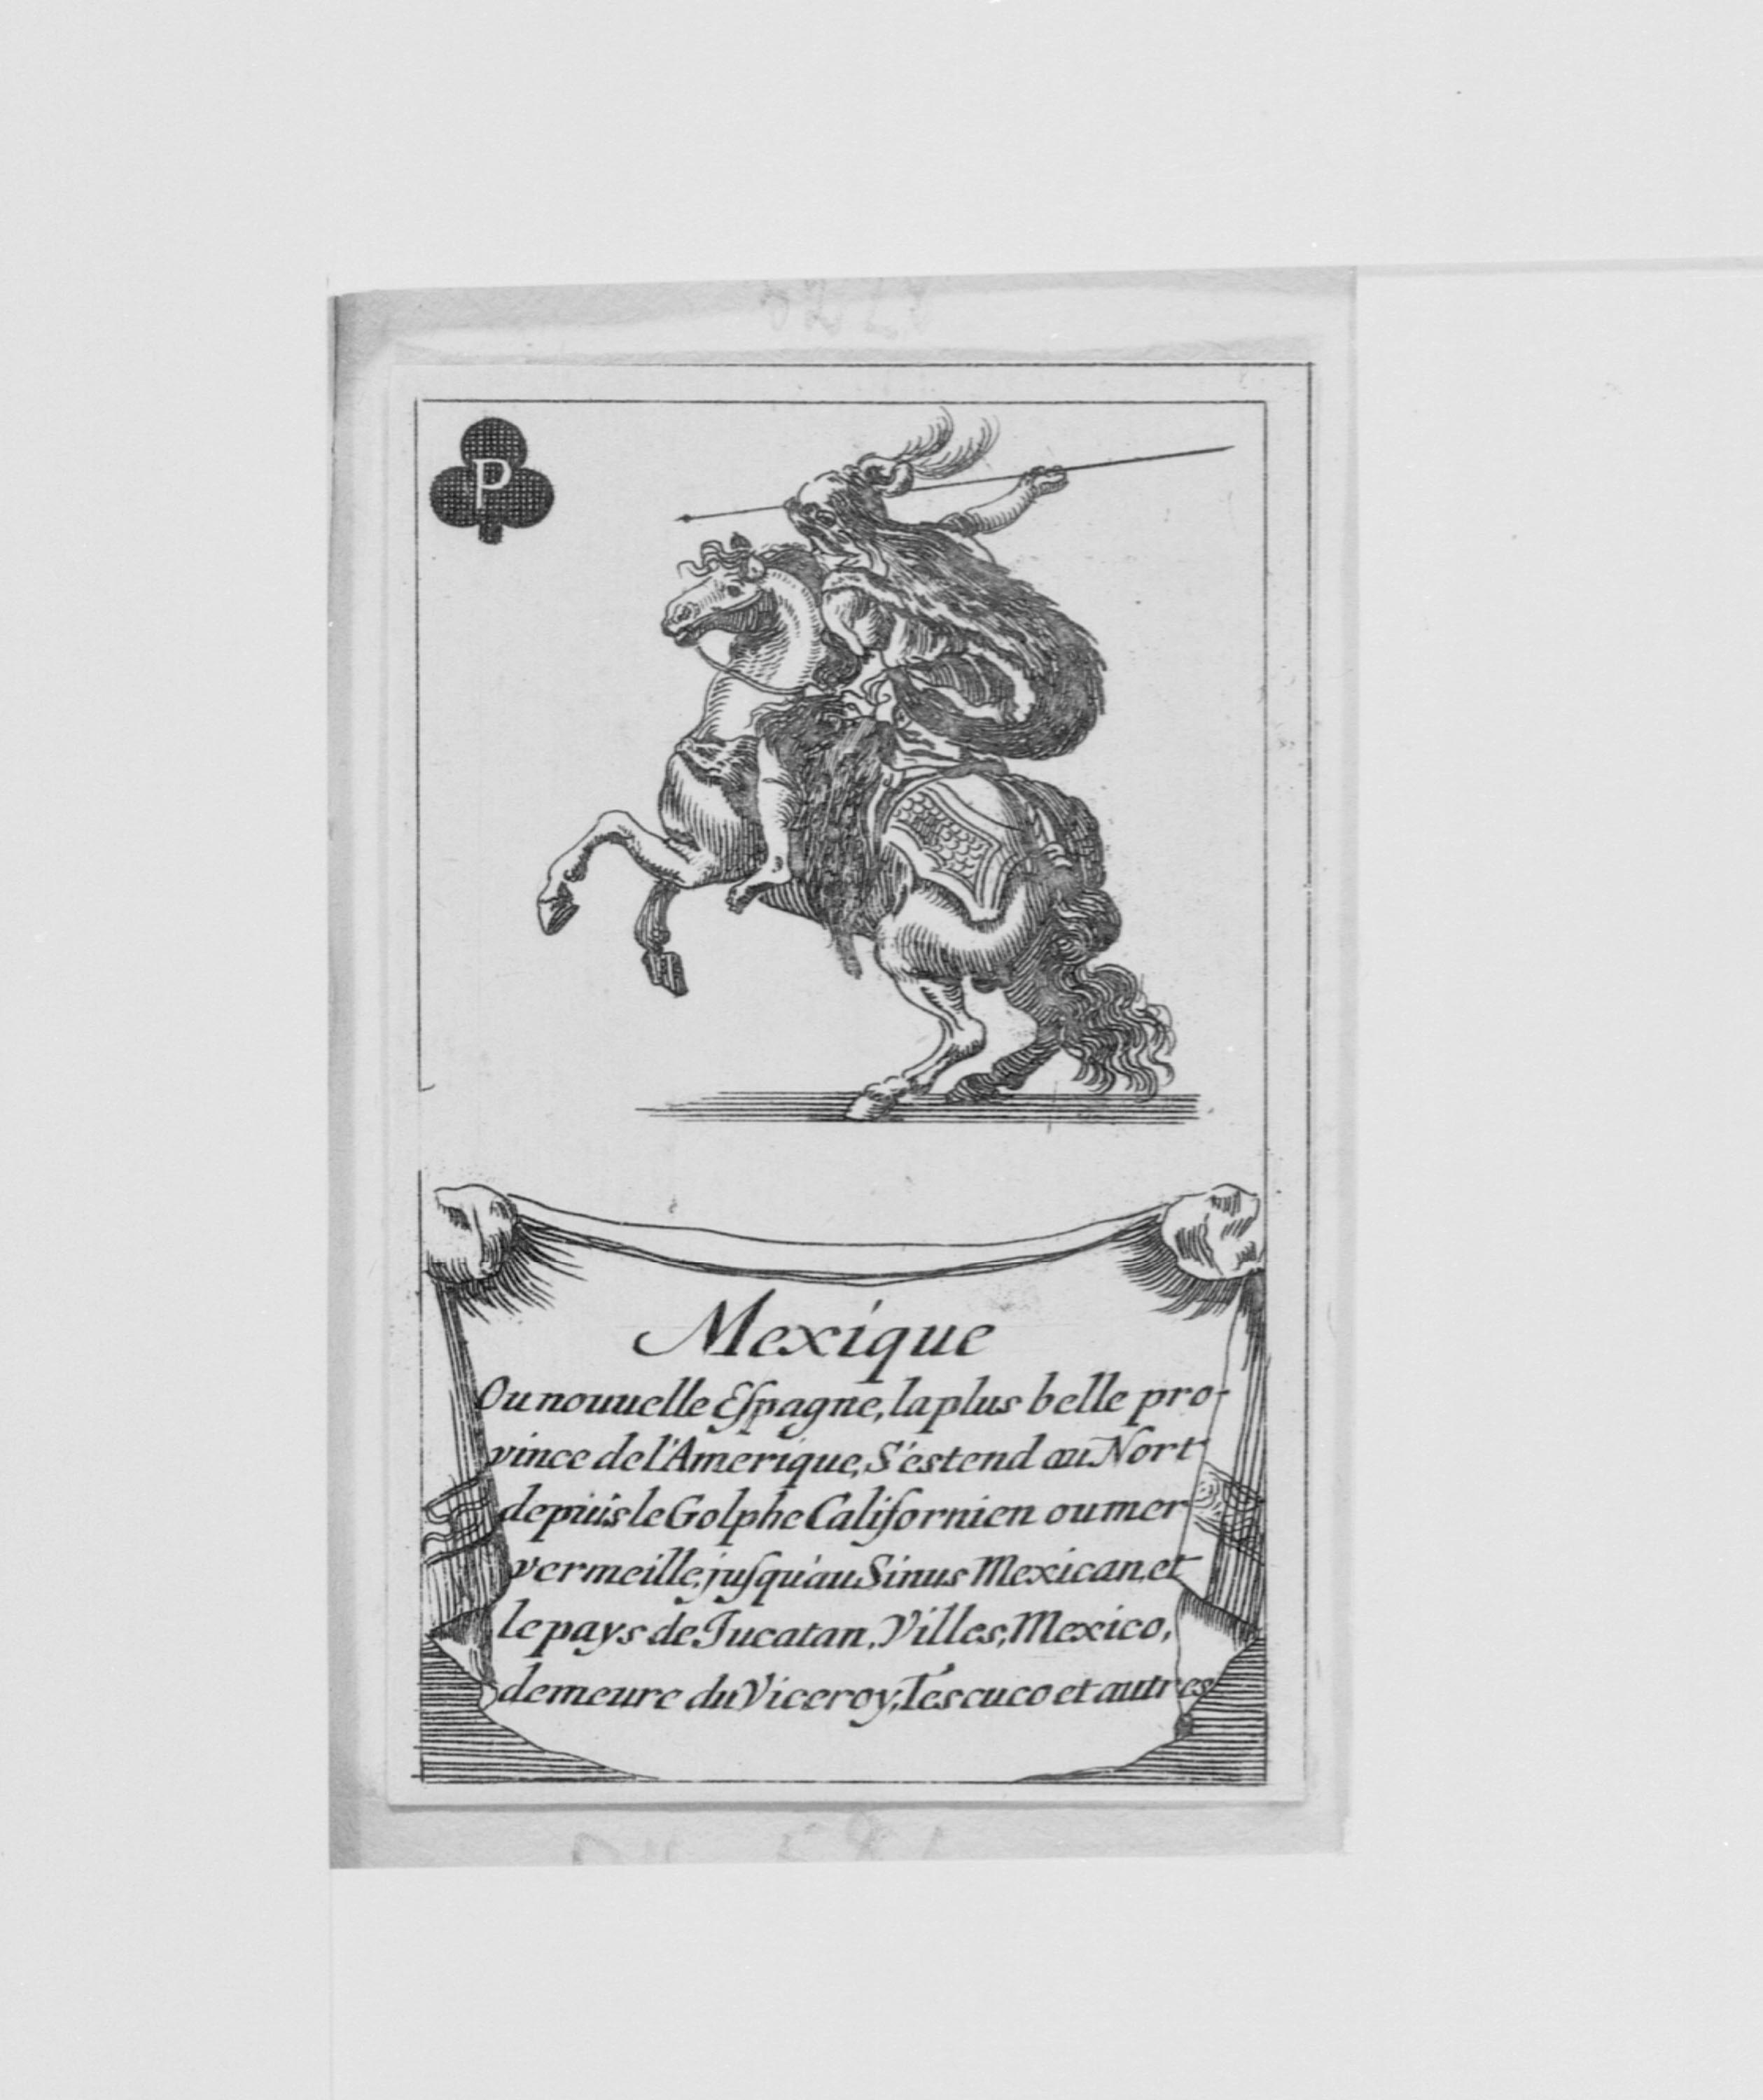 P
Mexique
Ou nouuelle Eſpagne, la plus belle pro-
vince de l'Amerique, S'estend au Nort
depuis le Golphe Californien ou mer
vermeille, juſqu'au Sinus Mexican, et
le pays de Jucatan, Villes, Mexico,
demeure du Viceroy, Tescuco et autres